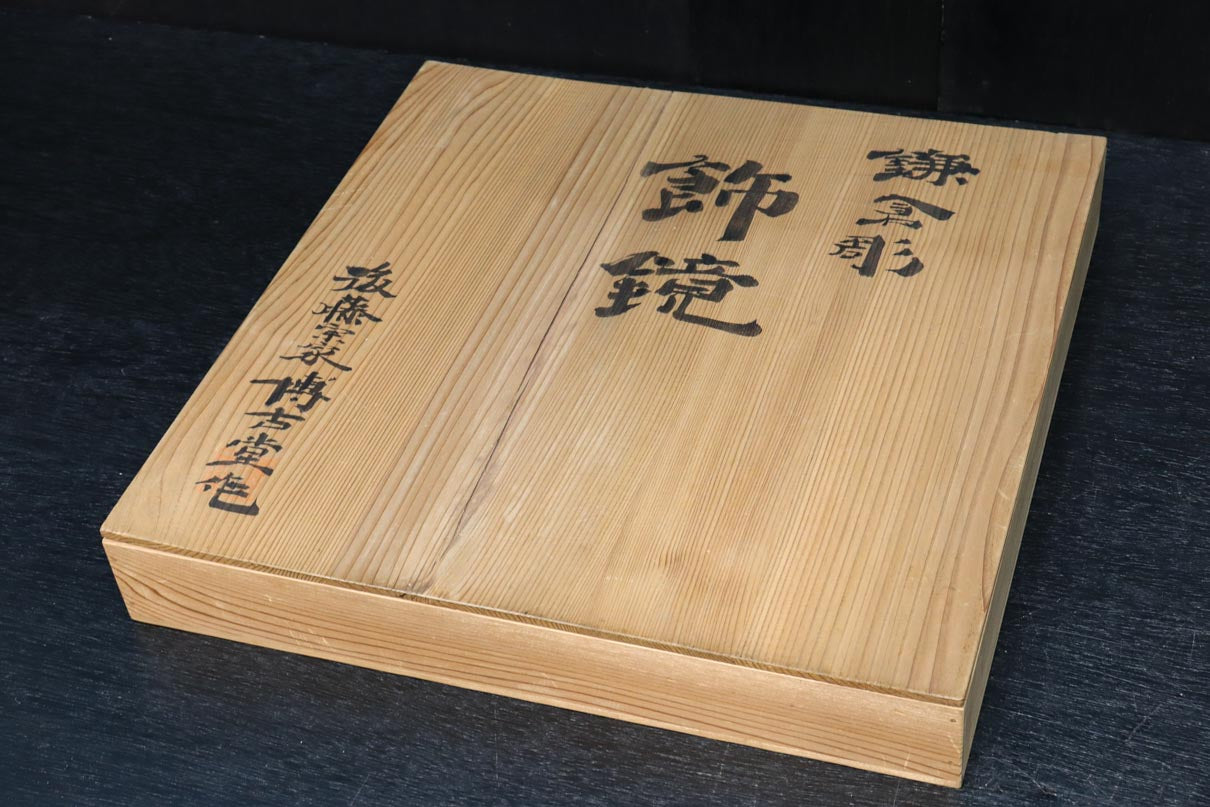 鎌倉彫
飾鏡
後藤宗家博古堂作